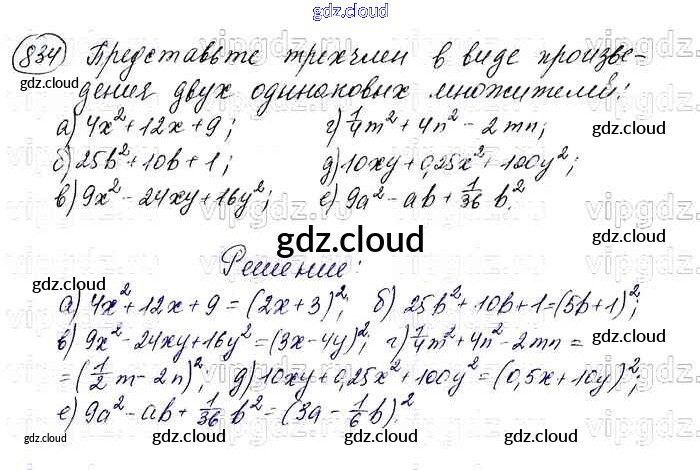 gdz.cloud
834 Представьте трехчлен в виде произве-
дения двух одинаковых множителей:
а) 4x²+12x+9; г) 1/4m²+4n²-2mn;
б) 25b²+10b+1; д) 10xy+0,25x²+100y²;
в) 9x²-24xy+16y²; е) 9a²-ab+1/36 b².
gdz.cloud
Решение:
а) 4x²+12x+9=(2x+3)²; б) 25b²+10b+1=(5b+1)²;
в) 9x²-24xy+16y²=(3x-4y)²; г) 1/4m²+4n²-2mn=
=(1/2 m-2n)²; д) 10xy+0,25x²+100y²=(0,5x+10y)²;
е) 9a²-ab+1/36 b²=(3a-1/6 b)².
gdz.cloud